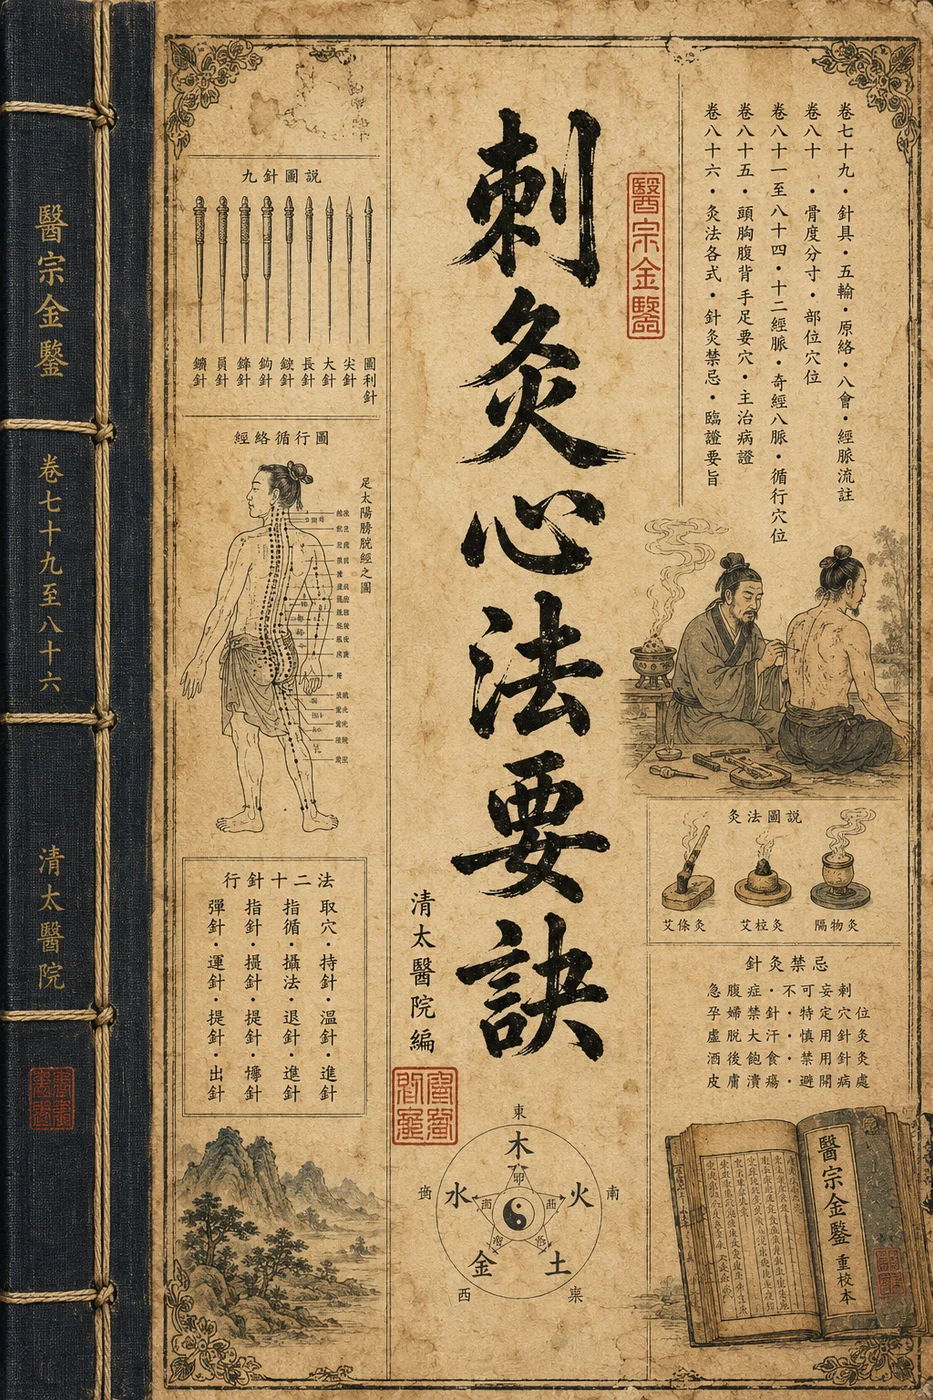 醫宗金鑒
卷七十九至八十六
清太醫院
刺灸心法要訣
醫宗金鑒
清太醫院編
卷七十九・針具・五輸・原絡・八會・經脈流註
卷八十・骨度分寸・部位穴位
卷八十一至八十四・十二經脈・奇經八脈・循行穴位
卷八十五・頭胸腹背手足要穴・主治病證
卷八十六・灸法各式・針灸禁忌・臨證要旨
九針圖說
圓利針
尖針
大針
長針
鈹針
鉤針
鋒針
員針
鑱針
經絡循行圖
足太陽膀胱經之圖
行針十二法
取穴・持針・溫針・進針
指循・攝法・退針・進針
指針・撮針・提針・
彈針・運針・提針・出針
灸法圖說
艾條灸
艾柱灸
隔物灸
針灸禁忌
急腹症・不可妄刺
孕婦禁針・特定穴位
虛脫大汗・慎用針灸
酒後飽食・禁用針灸
皮膚潰瘍・避開病處
東
木
水
火
南
金
土
西
醫宗金鑒
重校本